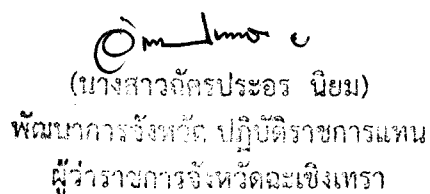 (นางสาวฉัตรประอร นิยม)
พัฒนาการจังหวัด ปฏิบัติราชการแทน
ผู้ว่าราชการจังหวัดฉะเชิงเทรา